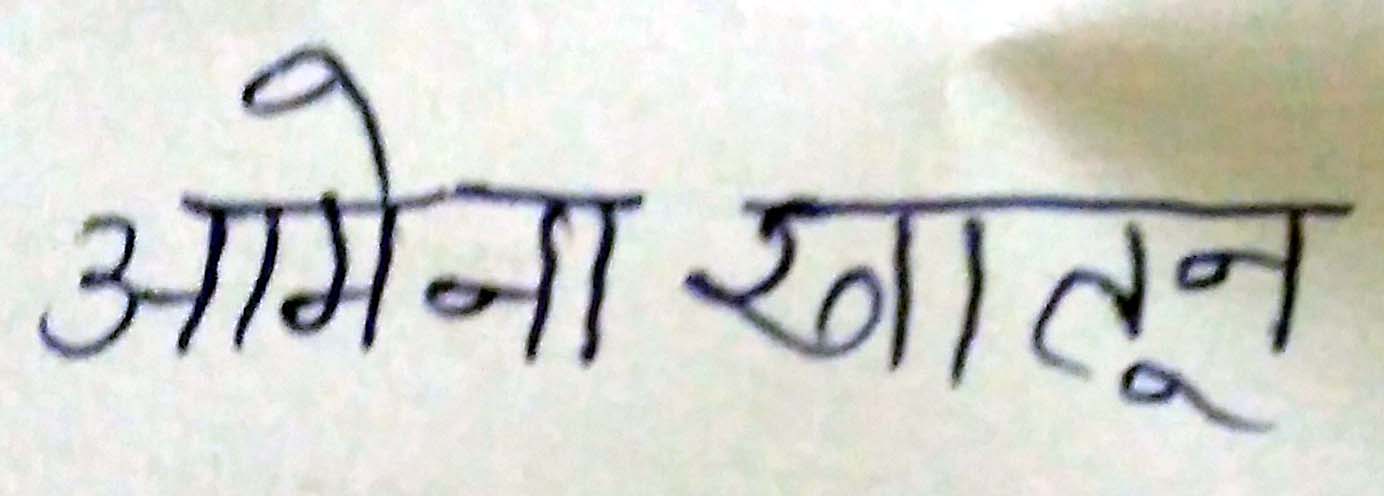 आमेना खातून